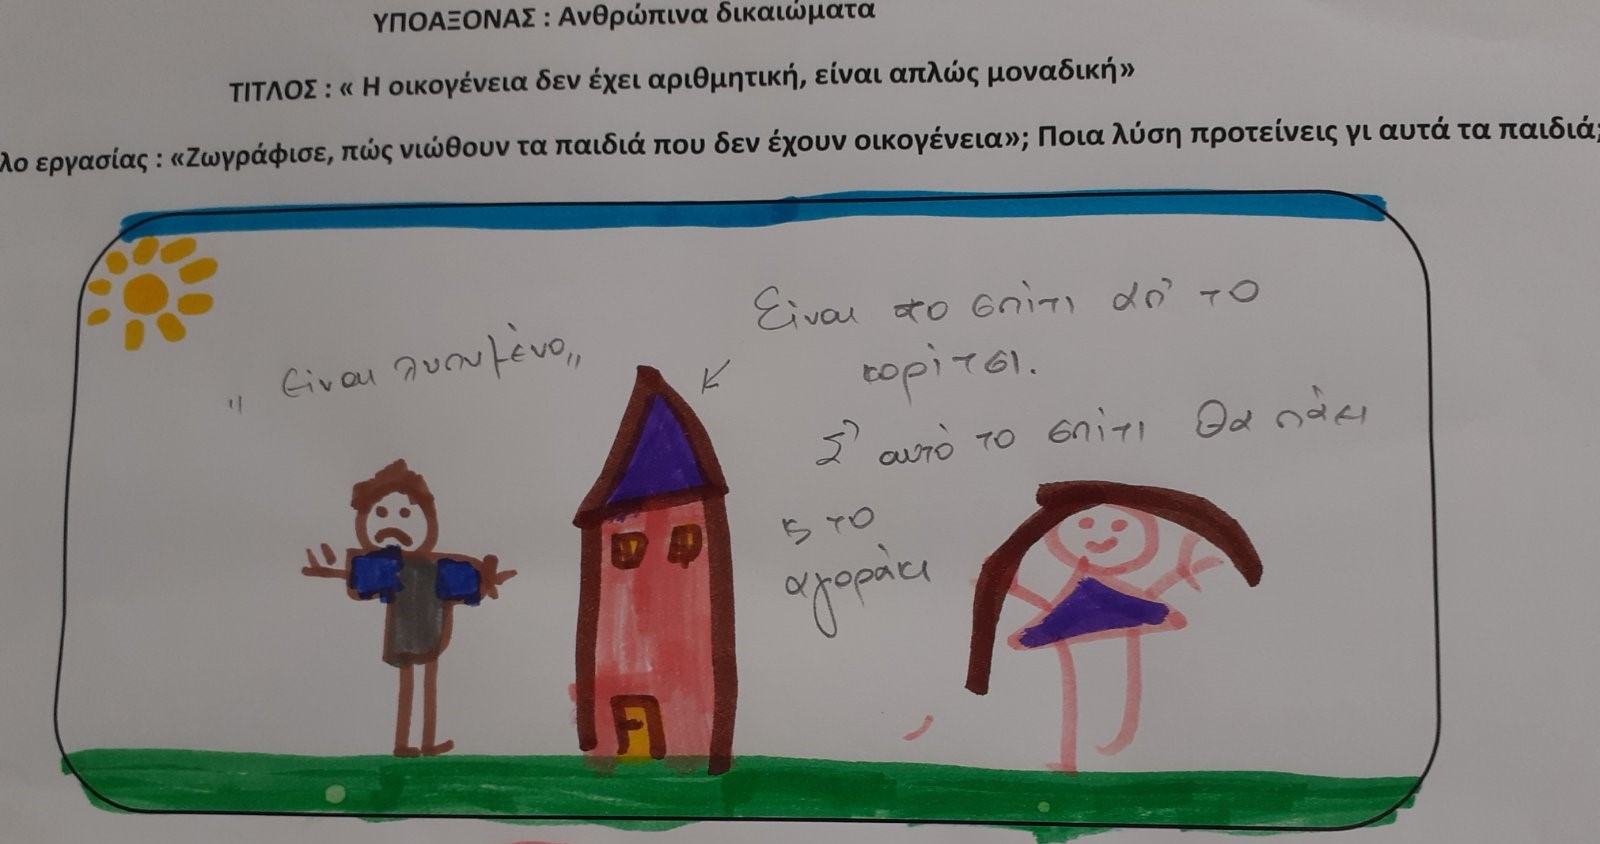 ΥΠΟΑΞΟΝΑΣ : Ανθρώπινα δικαιώματα
ΤΙΤΛΟΣ : « Η οικογένεια δεν έχει αριθμητική, είναι απλώς μοναδική»
λο εργασίας : «Ζωγράφισε, πώς νιώθουν τα παιδιά που δεν έχουν οικογένεια»; Ποια λύση προτείνεις γι αυτά τα παιδιά;
"Είναι λυπημένο"
Είναι το σπίτι απ' το
κορίτσι.
Σ' αυτό το σπίτι θα πάει
κ το
αγοράκι